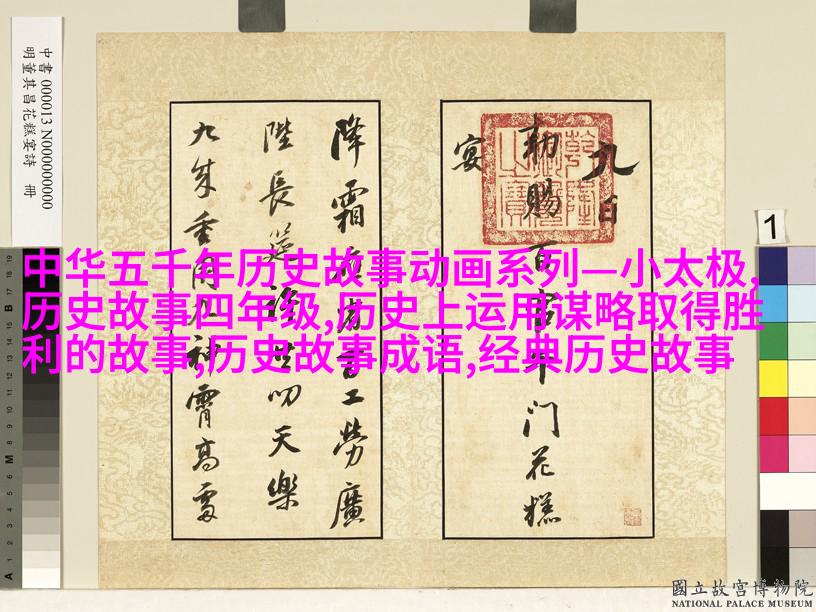 中華五千年历史故事动画系列—小太极,
历史故事四年级,历史上运用谋略取得胜
利的故事,历史故事成语,经典历史故事
九日
勅賜百官午門花糕
宴
降霜 工勞廣
陛長筵 叨天樂
九成重 神霄高
中書 000013 N000000000
明董其昌花糕宴詩 冊
1
國立故宮博物院
NATIONAL PALACE MUSEUM